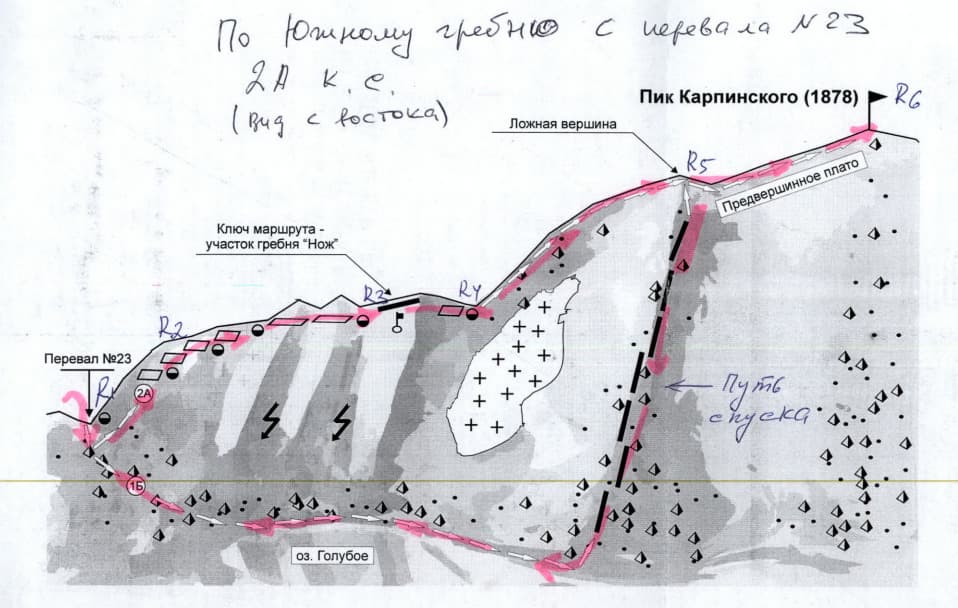 По Южному гребню с перевала N23
2А к.с.
(вид с востока)
Пик Карпинского (1878)
R6
Ложная вершина
R5
Предвершинное плато
Ключ маршрута -
участок гребня "Нож"
R3
R4
R2
Перевал №23
R1
2А
Путь
спуска
1Б
оз. Голубое